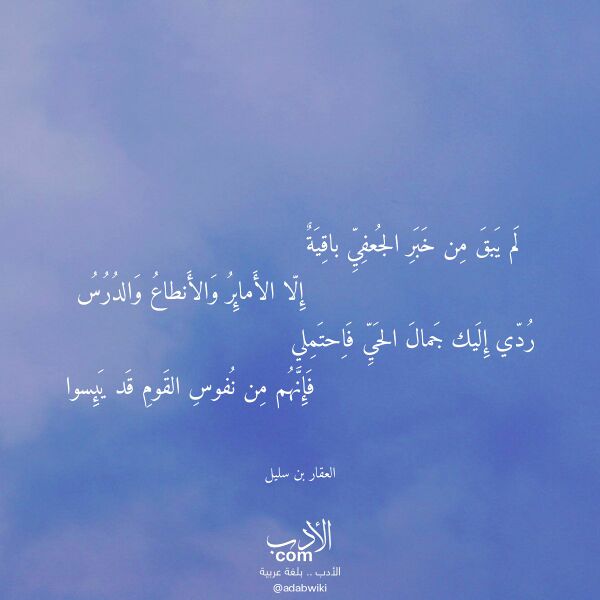 لَم يَبقَ مِن خَبَرِ الجُعفِيِّ باقِيَةٌ
إِلّا الأَمايِرُ وَالأَنطاعُ وَالدُرُسُ
رُدّي إِلَيك جَمالَ الحَيِّ فَاِحتَمِلي
فَإِنَّهُم مِن نُفوسِ القَومِ قَد يَئِسوا
العقار بن سليل
الأدب
com
الأدب .. بلغة عربية
@adabwiki